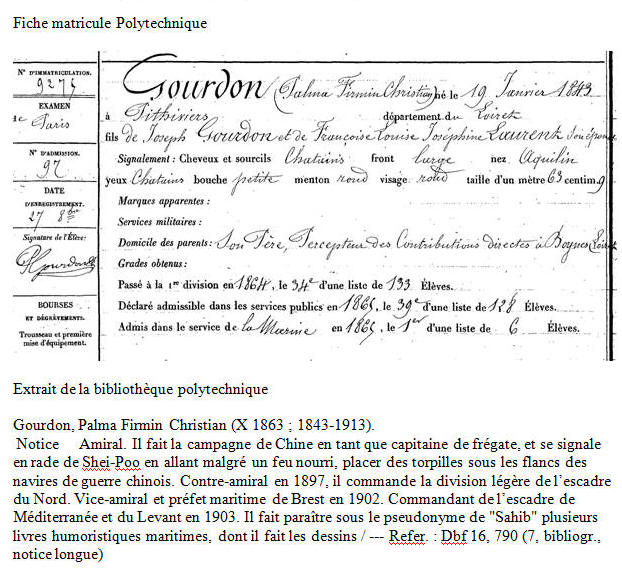 Fiche matricule Polytechnique
N° D'IMMATRICULATION.
9275
EXAMEN
de Paris
N° D'ADMISSION.
97
DATE
D'ENREGISTREMENT.
27 8bre
Signature de l'Élève:
PGourdon
BOURSES
ET DÉGRÈVEMENTS.
Trousseau et première
mise d'équipement.
Gourdon (Palma Firmin Christian) né le 19 Janvier 1843
à Pithiviers département du Loiret
fils de Joseph Gourdon et de Françoise Louise Joséphine Laurent son épouse
Signalement : Cheveux et sourcils Chatains front large nez Aquilin
yeux Chatains bouche petite menton rond visage rond taille d'un mètre 63 centim.
Marques apparentes :
Services militaires :
Domicile des parents: Son Père, Percepteur des Contributions directes à Boynes Loiret
Grades obtenus:
Passé à la 1re division en 1864, le 34e d'une liste de 133 Élèves.
Déclaré admissible dans les services publics en 1865, le 39e d'une liste de 128 Élèves.
Admis dans le service de la Marine en 1865, le 1er d'une liste de 6 Élèves.
Extrait de la bibliothèque polytechnique
Gourdon, Palma Firmin Christian (X 1863 ; 1843-1913).
Notice Amiral. Il fait la campagne de Chine en tant que capitaine de frégate, et se signale
en rade de Shei-Poo en allant malgré un feu nourri, placer des torpilles sous les flancs des
navires de guerre chinois. Contre-amiral en 1897, il commande la division légère de l'escadre
du Nord. Vice-amiral et préfet maritime de Brest en 1902. Commandant de l'escadre de
Méditerranée et du Levant en 1903. Il fait paraître sous le pseudonyme de "Sahib" plusieurs
livres humoristiques maritimes, dont il fait les dessins / --- Refer. : Dbf 16, 790 (7, bibliogr.,
notice longue)